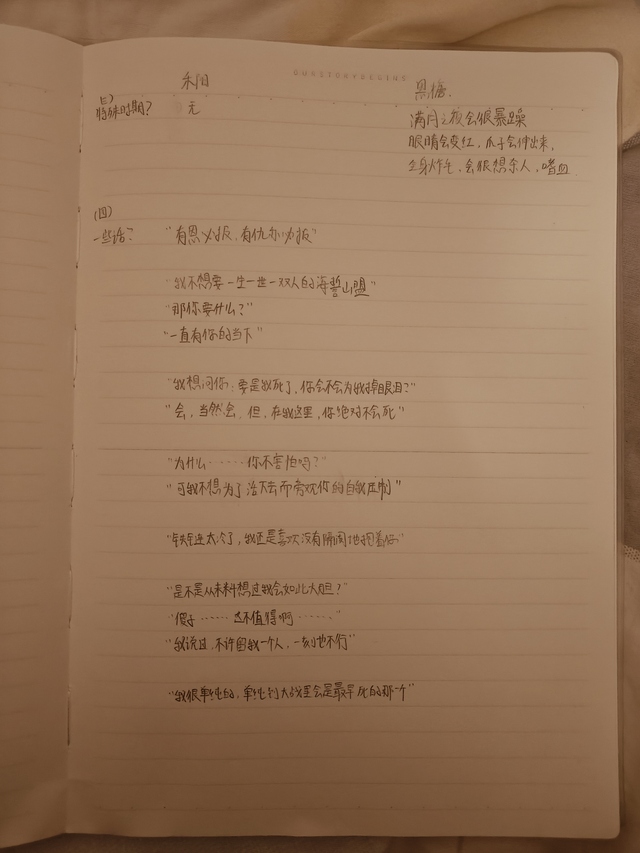 QUESTORYDESIGNS
禾阳
黑糖.
(三)
特殊时期?
无
满月之夜会很暴躁
眼睛会变红,爪子会伸出来,
全身炸毛,会很想杀人,嗜血
(四)
一些话?
"有恩必报,有仇亦必报"
"我不想要一生一世一双人的海誓山盟"
"那你要什么?"
"一直有你的当下"
"我想问你:要是我死了,你会不会为我掉眼泪?"
"会,当然会,但,在我这里,你绝对不会死"
"为什么……你不害怕吗?"
"可我不想为了活下去而旁观你的自我压制"
"铁链太冷了,我还是喜欢没有隔阂地抱着你"
"是不是从未料想过我会如此大胆?"
"傻子……这不值得啊……"
"我说过,不许留我一个人,一刻也不行"
"我很单纯的,单纯到大战里会是最早死的那个"